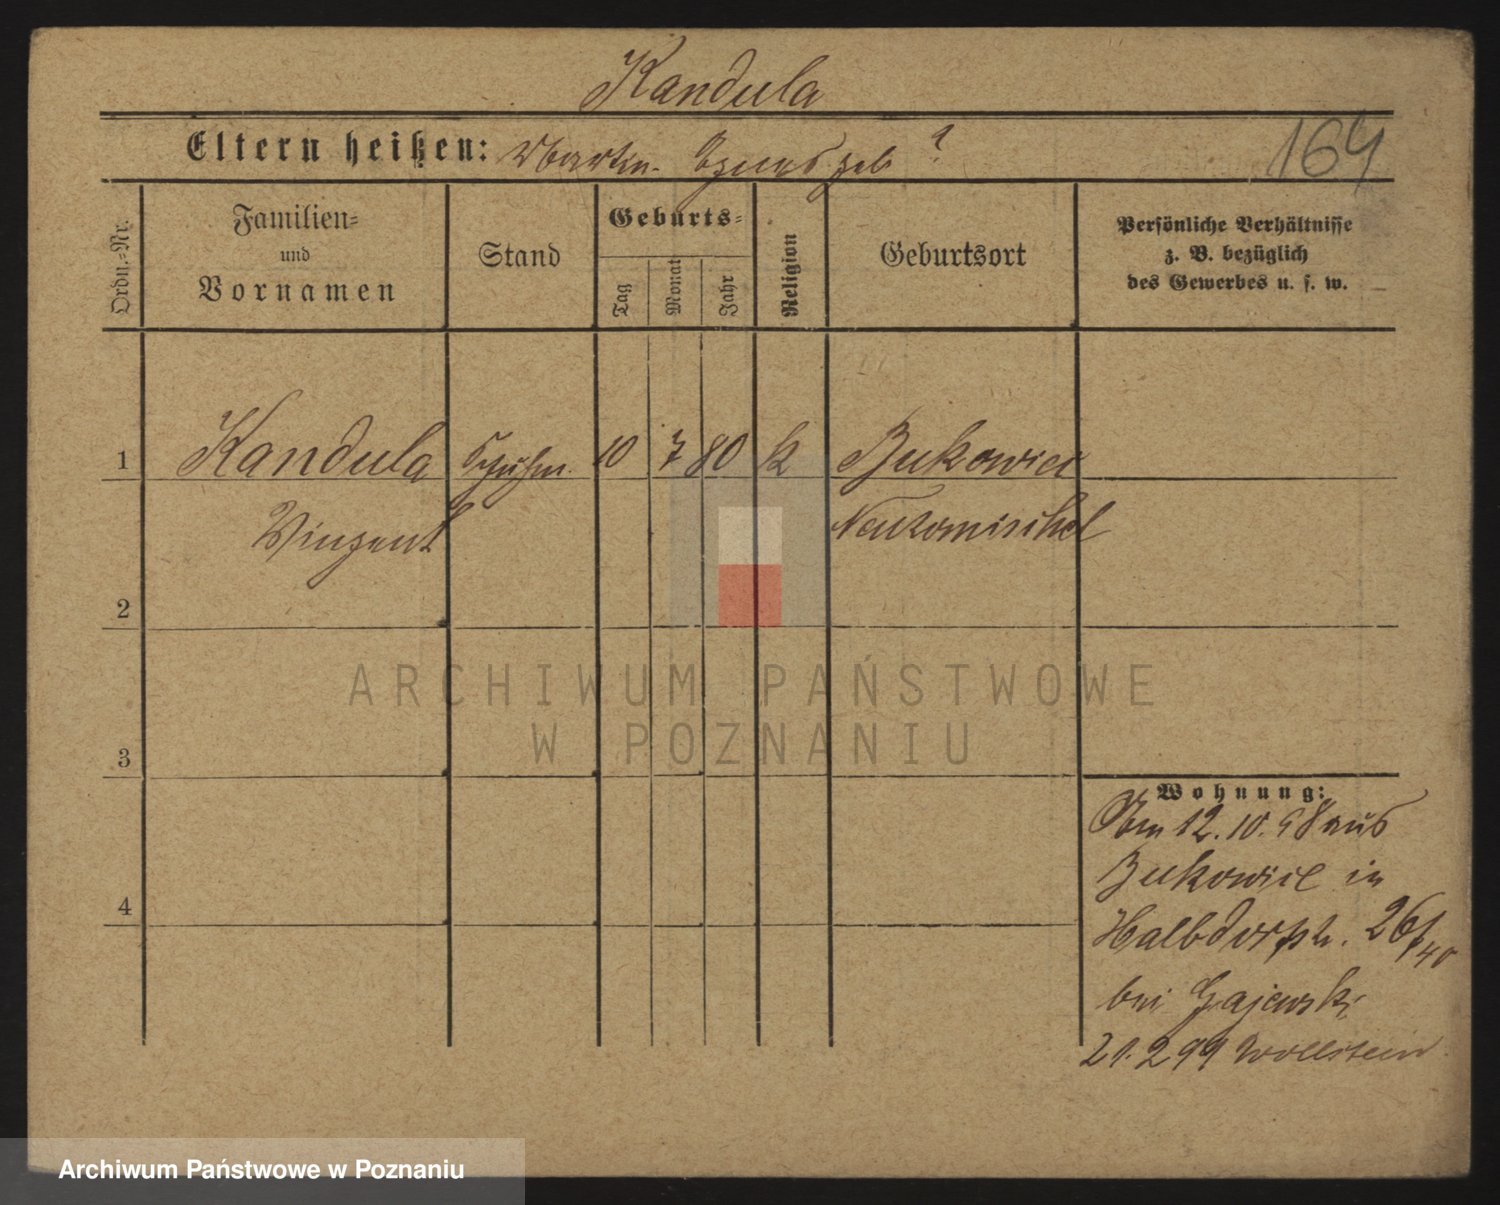 Kandula
Eltern heißen: Martin. Agnes geb ?
164
Ordn.-Nr.
Familien-
und
Vornamen
Stand
Geburts-
Tag
Monat
Jahr
Religion
Geburtsort
Persönliche Verhältnisse
z. B. bezüglich
des Gewerbes u. s. w.
1 Kandula Schuhm. 10 7 80 k Bukowiec
Vinzent Neutomischel
2
3
4
Wohnung:
Am 12.10.98 aus
Bukowiec in
Halbdorfstr. 26/40
bei Gajewski
21.2 99 Wollstein
ARCHIWUM PAŃSTWOWE
W POZNANIU
Archiwum Państwowe w Poznaniu